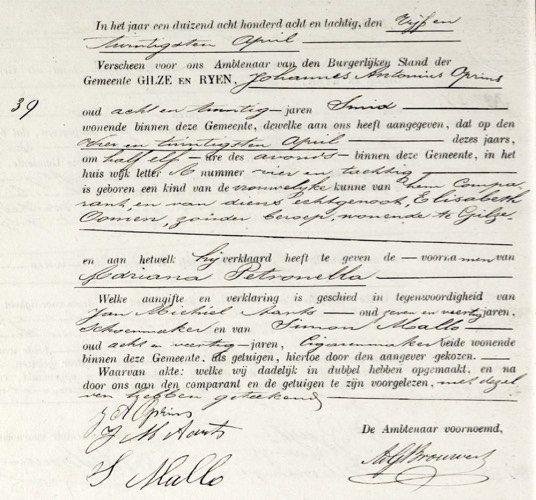 In het jaar een duizend acht honderd acht en tachtig, den Vijf en
twintigsten April
Verscheen voor ons Ambtenaar van den Burgerlijken Stand der
Gemeente GILZE EN RYEN, Johannes Antonius Oprins
39
oud acht en twintig jaren Smid
wonende binnen deze Gemeente, dewelke aan ons heeft aangegeven, dat op den
Vier en twintigsten April dezes jaars,
om half elf ure des avonds binnen deze Gemeente, in het
huis wijk letter A nummer vier en tachtig
is geboren een kind van de vrouwelyke kunne van hem Compa-
rant, en van diens echtgenoot, Elisabeth
Oomen, zonder beroep, wonende te Gilze.
en aan hetwelk hij verklaard heeft te geven de voornamen van
Adriana Petronella
Welke aangifte en verklaring is geschied in tegenwoordigheid van
Jan Michiel Aarts oud zeven en veertig jaren,
Schoenmaker en van Simon Mallo
oud acht en veertig jaren, Cigarenmaker beide wonende
binnen deze Gemeente, als getuigen, hiertoe door den aangever gekozen.
Waarvan akte: welke wij dadelijk in dubbel hebben opgemaakt, en na
door ons aan den comparant en de getuigen te zijn voorgelezen, met dezel
ven hebben geteekend
J A Oprins
J M Aarts
S Mallo
De Ambtenaar voornoemd,